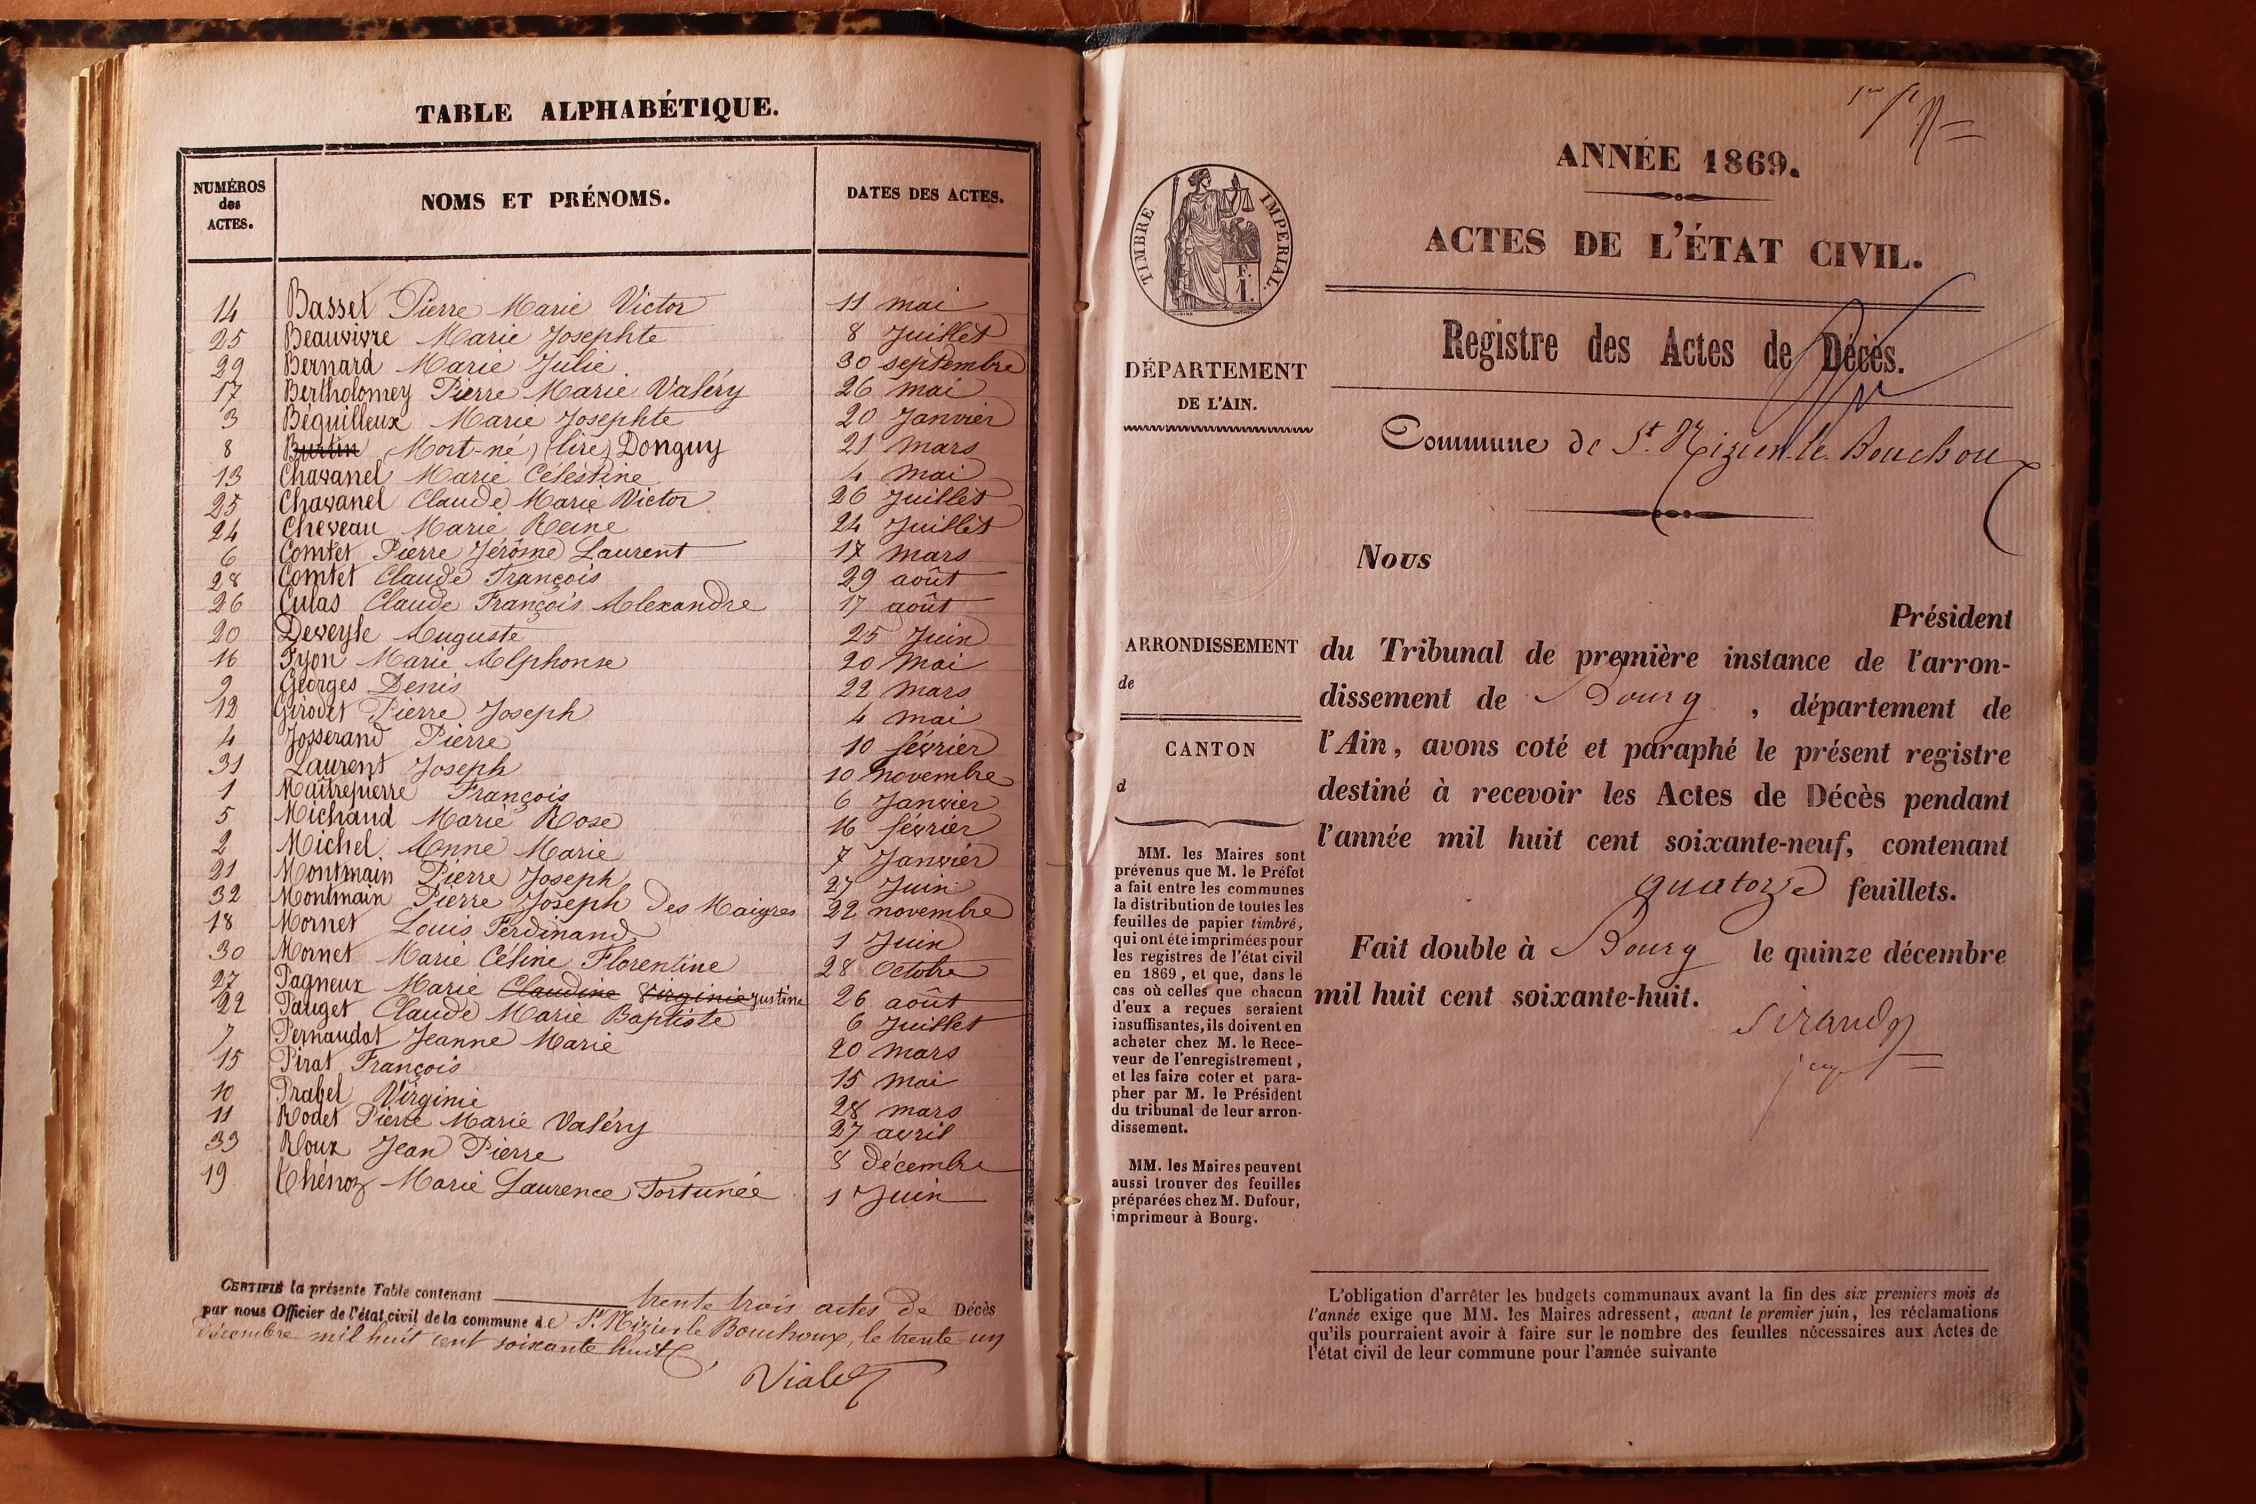 TABLE ALPHABÉTIQUE.
NUMÉROS des ACTES.
NOMS ET PRÉNOMS.
DATES DES ACTES.
14 Basset Pierre Marie Victor 11 mai
25 Beauvivre Marie Josephte 8 Juillet
29 Bernard Marie Julie 30 septembre
17 Bertholomey Pierre Marie Valéry 26 mai
3 Béguilleux Marie Josephte 20 Janvier
8 Burtin Mort-né (lire) Donguy 21 mars
13 Chavanel Marie Célestine 4 mai
25 Chavanel Claude Marie Victor 26 Juillet
24 Cheveau Marie Reine 24 Juillet
6 Comtet Pierre Jérôme Laurent 17 mars
28 Comtet Claude François 29 août
26 Culas Claude François Alexandre 17 août
20 Deveyle Auguste 25 Juin
16 Fyon Marie Alphonse 20 mai
9 Georges Denis 22 mars
12 Girodet Pierre Joseph 4 mai
4 Josserand Pierre 10 février
31 Laurent Joseph 10 novembre
1 Maîtrepierre François 6 Janvier
5 Michaud Marie Rose 16 février
2 Michel Anne Marie 7 Janvier
21 Montmain Pierre Joseph 27 Juin
32 Montmain Pierre Joseph des Maigres 22 novembre
18 Mornet Louis Ferdinand 1 Juin
30 Mornet Marie Céline Florentine 28 Octobre
27 Pagneux Marie Claudine Virginie Justine 26 août
22 Pauget Claude Marie Baptiste 6 Juillet
7 Pernaudat Jeanne Marie 20 mars
15 Pirat François 15 mai
10 Prabel Virginie 28 mars
11 Rodet Pierre Marie Valéry 27 avril
33 Roux Jean Pierre 8 décembre
19 Thénoz Marie Laurence Fortunée 1 Juin
CERTIFIÉ la présente Table contenant trente trois actes de Décès
par nous Officier de l'état civil de la commune de St. Nizier le Bouchoux, le trente un
décembre mil huit cent soixante huit
Vialet
ANNÉE 1869.
ACTES DE L'ÉTAT CIVIL.
TIMBRE IMPERIAL.
Registre des Actes de Décès.
Commune de St. Nizier-le-Bouchoux
DÉPARTEMENT
DE L'AIN.
ARRONDISSEMENT
de
CANTON
d
MM. les Maires sont
prévenus que M. le Préfet
a fait entre les communes
la distribution de toutes les
feuilles de papier timbré,
qui ont été imprimées pour
les registres de l'état civil
en 1869, et que, dans le
cas où celles que chacun
d'eux a reçues seraient
insuffisantes, ils doivent en
acheter chez M. le Rece-
veur de l'enregistrement,
et les faire coter et para-
pher par M. le Président
du tribunal de leur arron-
dissement.
MM. les Maires peuvent
aussi trouver des feuilles
préparées chez M. Dufour,
imprimeur à Bourg.
Nous
Président
du Tribunal de première instance de l'arron-
dissement de Bourg, département de
l'Ain, avons coté et paraphé le présent registre
destiné à recevoir les Actes de Décès pendant
l'année mil huit cent soixante-neuf, contenant
quatorze feuillets.
Fait double à Bourg le quinze décembre
mil huit cent soixante-huit.
Sirand
L'obligation d'arrêter les budgets communaux avant la fin des six premiers mois de
l'année exige que MM. les Maires adressent, avant le premier juin, les réclamations
qu'ils pourraient avoir à faire sur le nombre des feuilles nécessaires aux Actes de
l'état civil de leur commune pour l'année suivante